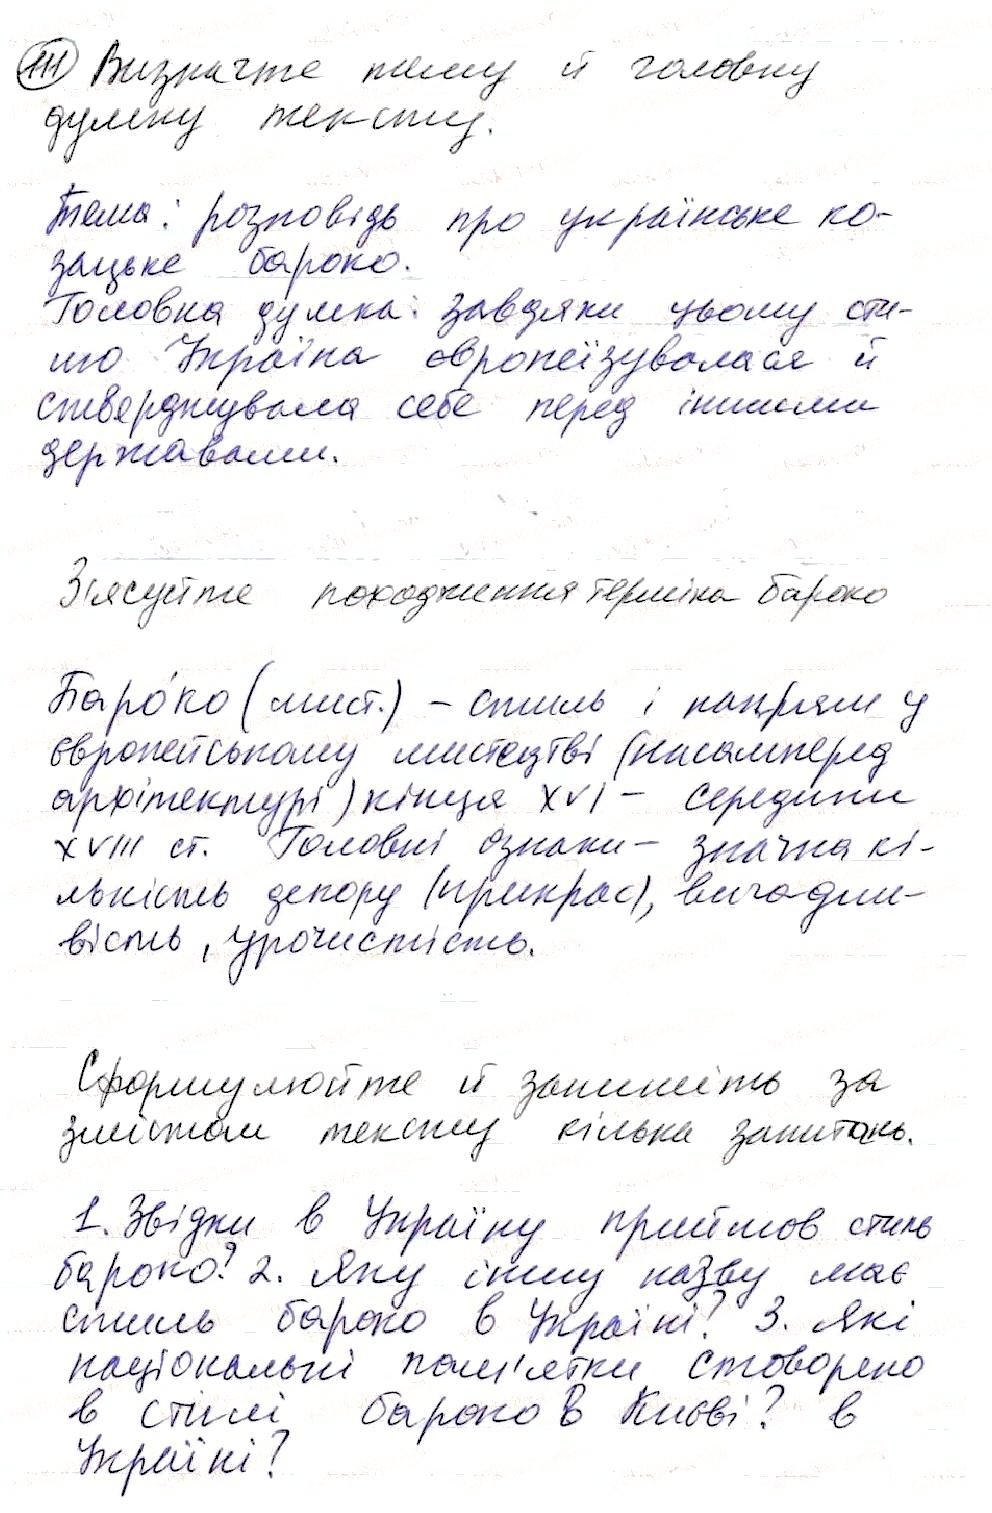 111 Визначте тему й головну
думку тексту.
Тема: розповідь про українське ко-
зацьке бароко.
Головна думка: завдяки цьому сти-
лю Україна європеїзувалася й
стверджувала себе перед іншими
державами.
З'ясуйте походження терміна бароко
Баро́ко (мист.) – стиль і напрям у
європейському мистецтві (насамперед
архітектурі) кінця XVI – середини
XVIII ст. Головні ознаки – значна кі-
лькість декору (прикрас), вигадли-
вість, урочистість.
Сформулюйте й запишіть за
змістом тексту кілька запитань.
1. Звідки в Україну прийшов стиль
бароко? 2. Яку іншу назву має
стиль бароко в Україні? 3. Які
національні пам'ятки створено
в стилі бароко в Києві? в
Україні?